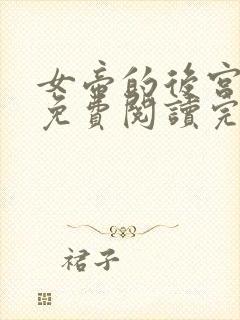 女帝的後宮
免費閱讀完
裙子